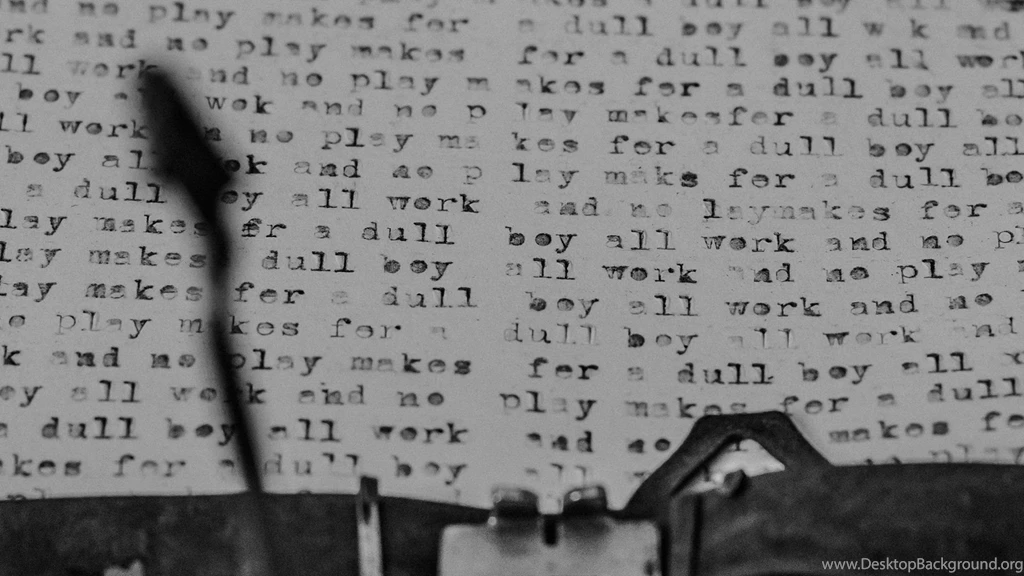 nd no play makes for a dull boy all w k and
rk and no play makes for a dull boy all work
ll work and no play m akes for a dull boy all
boy a wok and no p lay makesfor a dull bo
ll work n no play ma kes for a dull boy all
boy all wok and no p lay maks for a dull bo
a dull boy all work and no laymakes for a
lay makes fr a dull boy all work and no pl
lay makes dull boy all work and no play
lay makes for a dull boy all work and no
o play makes for a dull boy all work and
k and no play makes for a dull boy all
oy all work and no play makes for a dull
a dull boy all work and no makes fo
kes for a dull boy all play
www.DesktopBackground.org